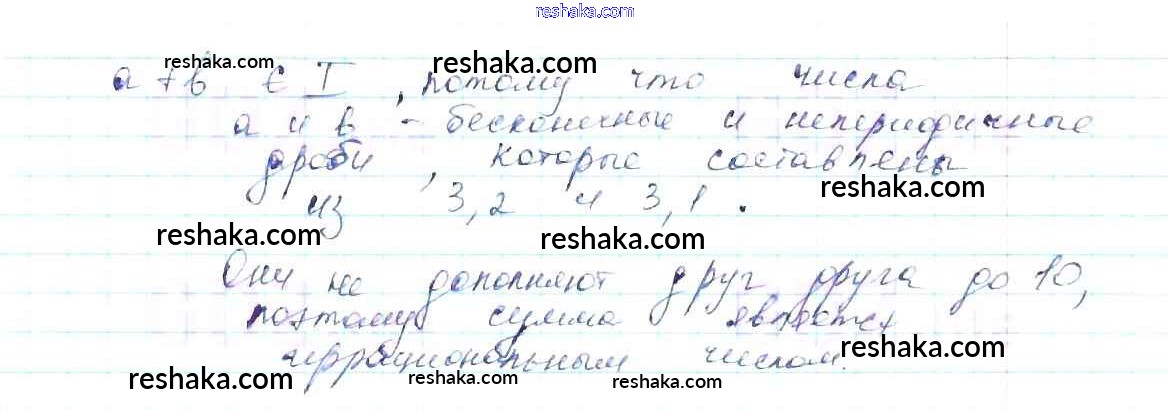 reshaka.com
reshaka.com reshaka.com
a + b ∈ I, потому что числа
a и b - бесконечные и непериодичные
дроби, которые составлены
reshaka.com
из 3,2 и 3,1.
reshaka.com reshaka.com
Они не дополняют друг друга до 10,
поэтому сумма является
reshaka.com
иррациональным числом.
reshaka.com reshaka.com reshaka.com